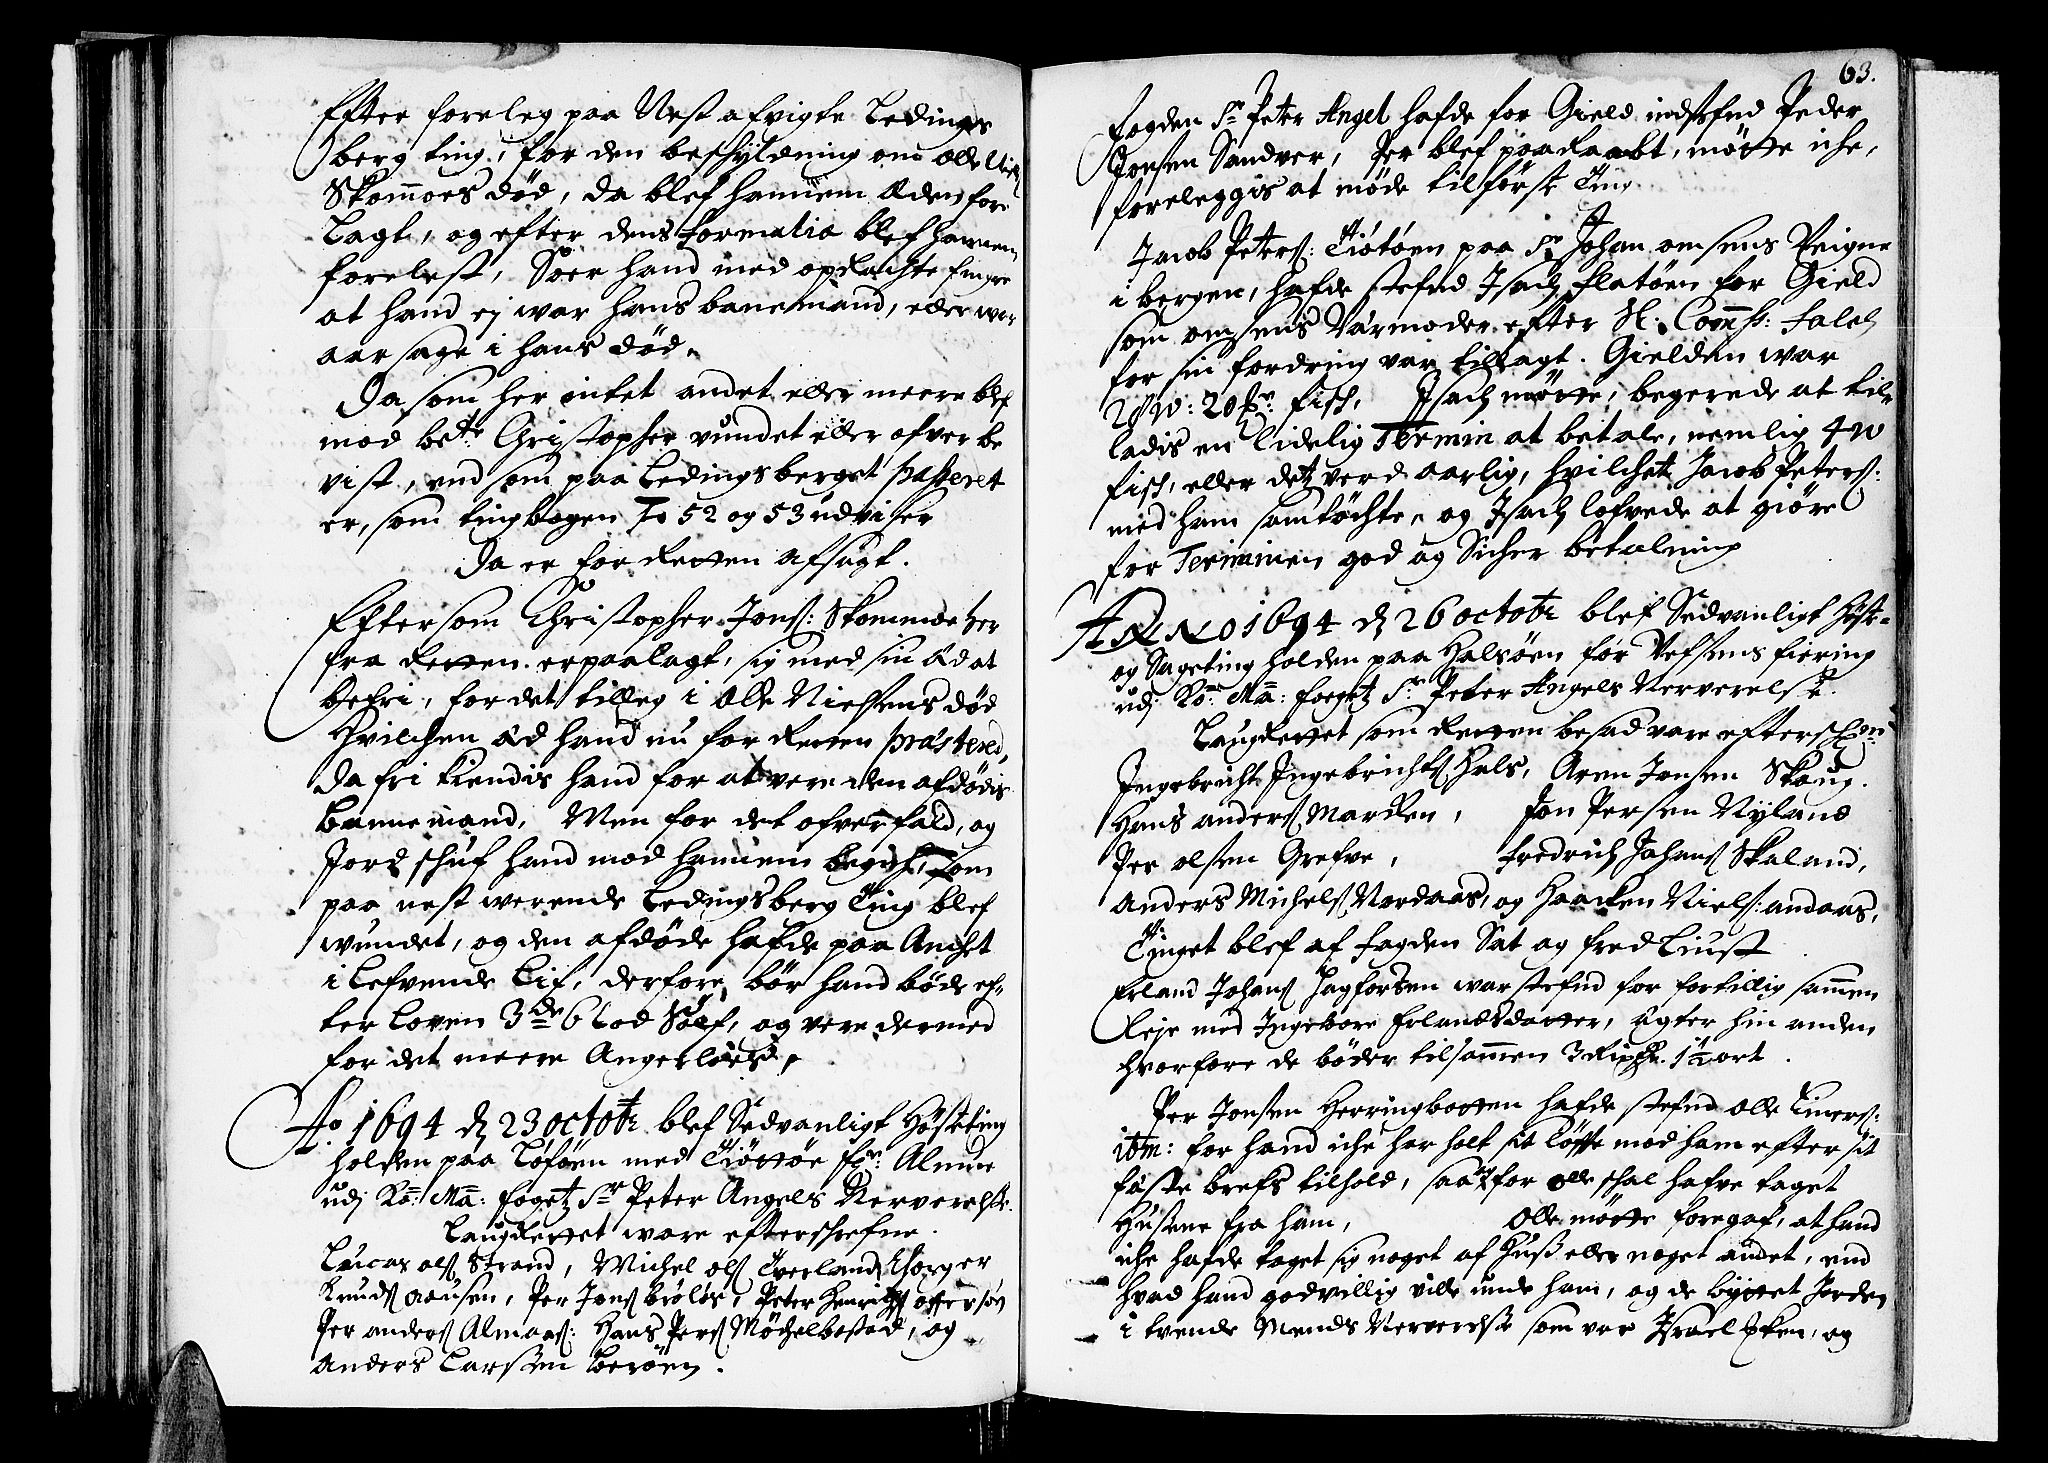 Efter foreleg paa Nest afvigte Ledings
berg ting, for den beschyldning om Olle Niels
Skomoes død, da blef hannem Æden fore
Lagt, og efter dens formalia blef hannem
forelest, Soer hand med opRachte fingre
at hand ej war hans banemand, eller war
aarsage i hans død.
Da som her intet andet eller meere blef
mod bete Christopher vundet eller ofver be
vist, end som paa Ledingsberget passeret
er, som tingbogen Fo 52 og 53 udviser
Da er for Retten afsagt.
Eftersom Christopher Jons: Skommoe her
fra Retten er paalagt, sig med sin Æd at
befri, for det tilleg i Olle Nielsens død
Hvilchen Æd hand nu for Retten præstered,
Da fri kiendis hand for at vere den afdødis
banne mand, Men for det ofverfald, og
Jord schuf hand mod hannem begich, som
paa nest werende Ledingsberg Ting blef
wundet, og den afdøde hafde paa Anchet
i Lefvende Lif, derfore bør hand bøde ef-
ter Loven 3de 6 Lod Sølf, og vere dermed
for det meere Angerløes.
Ao 1694 d 23 octobr blef Sedvanligt Høsteting
holden paa Løføen med Tiøttøe fr: Almue
udj Ko: Ma: fogetz Sr Peter Angels Nerverelse.
LaugRettet ware efterschrefne.
Lucas ols Strand, Michel ols Tverland, Thorger
Knuds Aausen, Per Jons brøløs, Peter Henrichs offersøy
Per anders Almaas: Hans Pers Møchelbostad, og
Anders Larssen berøen.
63.
fogden Sr Peter Angel hafde for Gield indstefnd Peder
Jonsen Sandver, Per blef paaRaabt, møtte iche,
foreleggis at møde til første Ting.
Jacob Peters: Tiøtøen paa Sr Johan omsens Veigne
i bergen, hafde stefnd Isach flatøen for Gield
som omsens Varmoder efter Sl: Commiss: falch
for sin fordring var tillagt. Gielden war
28 W: 20 fisch, Isach møtte, begerede at til-
ladis en Lidelig Termin at betale, nemlig 4 W
fisch, eller detz verd aarlig, hvilchet Jacob Peters:
med ham samtøchte, og Isach lofvede at giøre
for Terminen god og Sicher betalning
ANNO 1694 d 26 octobr blef Sedvanligt Høste-
og Sageting holden paa Halsøen for Vefsens fiering
udj Ko: Ma: fogetz Sr Peter Angels Nerverelse.
LaugRettet som Retten besad vare efterschrne
Ingebricht Ingebrichts Hals, Aren Jonsen Skoug.
Hans anders MarcKen, Jon Persen Nyland
Per olsen Grefve, fredrich Johans Skaland,
Anders Michels Nordaas, og Haacken Niels: andaas,
Tinget blef af fogden Sat og fred Liust
Erland Johans Hagforsen war stefnd for fortillig sammen
Leje med Ingebore Erlandsdatter, Ægter hin anden
hvorfore de bøder tilsammen 3 Ripdr. 1½ ort.
Per Jonsen Herringbotten hafde stefnd Olle Einers:
ibm: for hand iche har holt sit Løfte mod ham efter sit
fæste brefs tilhold, saa for Olle schal hafve taget
Husene fra ham, Olle møtte foregaf, at hand
iche hafde taget sig noget af Huus eller noget andet, end
hvad hand godvillig ville unde ham, og de byttet Jorden
i tvende Mends Nerverelse som var Israel, og